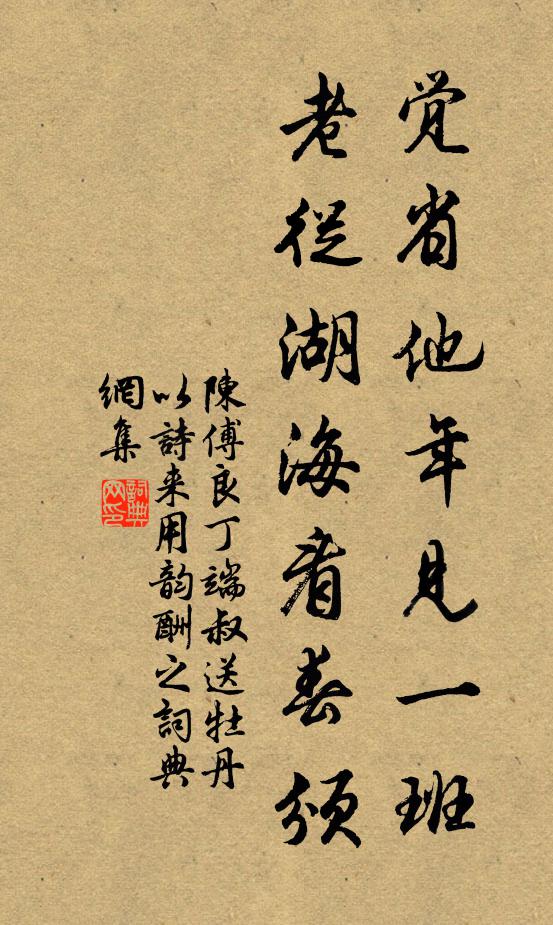 覚省他年見一班
老從湖海看春頒
陳傅良丁端叔送牡丹
以詩来用韵酬之詞典
網集
詞典网印